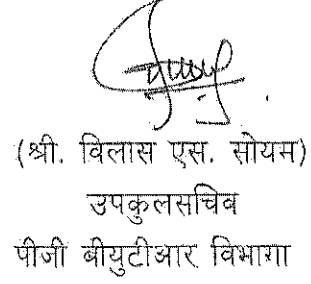 (श्री. विलास एस. सोयम)
उपकुलसचिव
पीजी बीयुटीआर विभागा